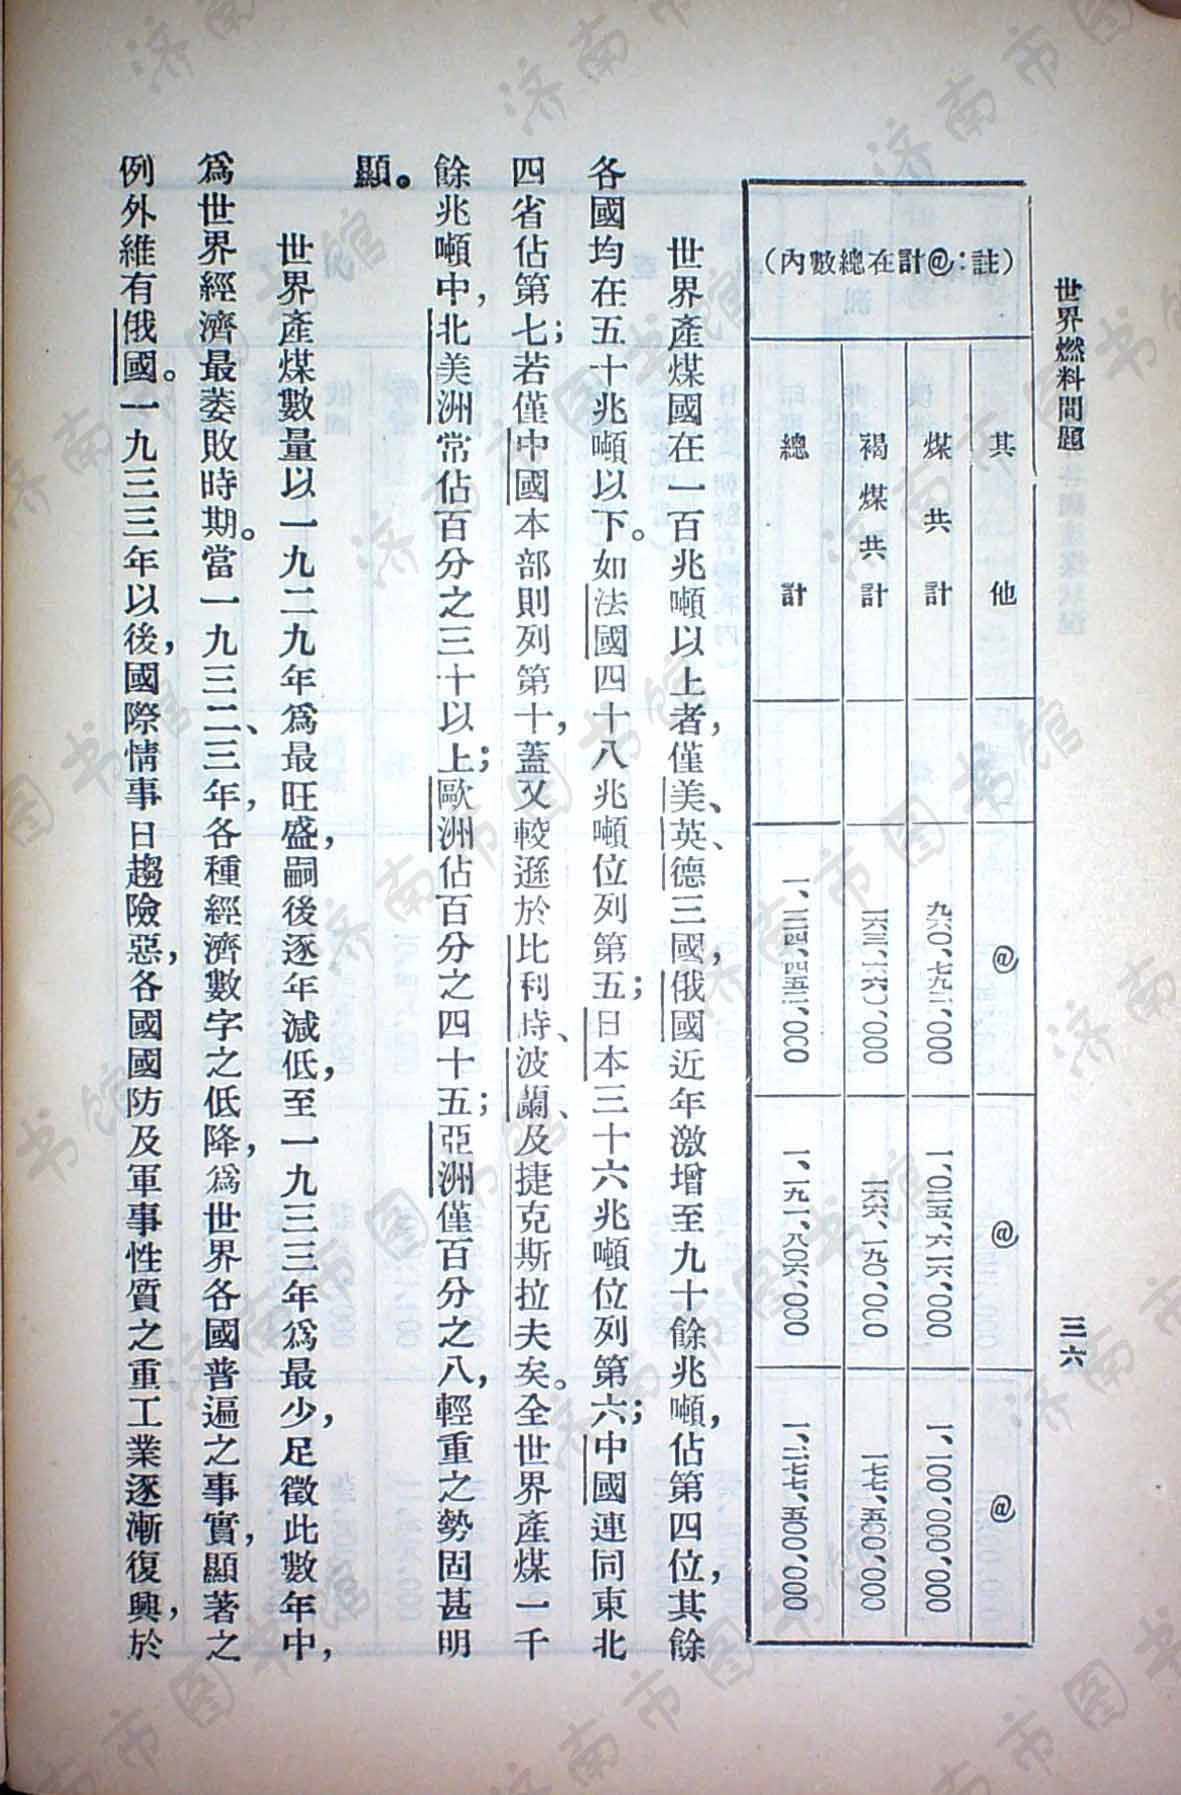 世界燃料問題
三六
其他 @ @ @
煤共計 九六〇、七九二、〇〇〇 一、〇二五、六一六、〇〇〇 一、一〇〇、〇〇〇、〇〇〇
褐煤共計 一六三、六六〇、〇〇〇 一六六、一九〇、〇〇〇 一七七、五〇〇、〇〇〇
總計 一、一二四、四五二、〇〇〇 一、一九一、八〇六、〇〇〇 一、二七七、五〇〇、〇〇〇
(註:@計在總數內)
世界產煤國在一百兆噸以上者,僅美、英、德三國,俄國近年激增至九十餘兆噸,佔第四位,其餘
各國均在五十兆噸以下。如法國四十八兆噸位列第五;日本三十六兆噸位列第六;中國連同東北
四省佔第七;若僅中國本部則列第十,蓋又較遜於比利時、波蘭、及捷克斯拉夫矣。全世界產煤一千
餘兆噸中,北美洲常佔百分之三十以上;歐洲佔百分之四十五;亞洲僅百分之八,輕重之勢固甚明
顯。
世界產煤數量以一九二九年爲最旺盛,嗣後逐年減低,至一九三三年爲最少,足徵此數年中,
爲世界經濟最萎敗時期。當一九三二、三年,各種經濟數字之低降,爲世界各國普遍之事實,顯著之
例外維有俄國。一九三三年以後,國際情事日趨險惡,各國國防及軍事性質之重工業逐漸復興,於
济南市图书馆